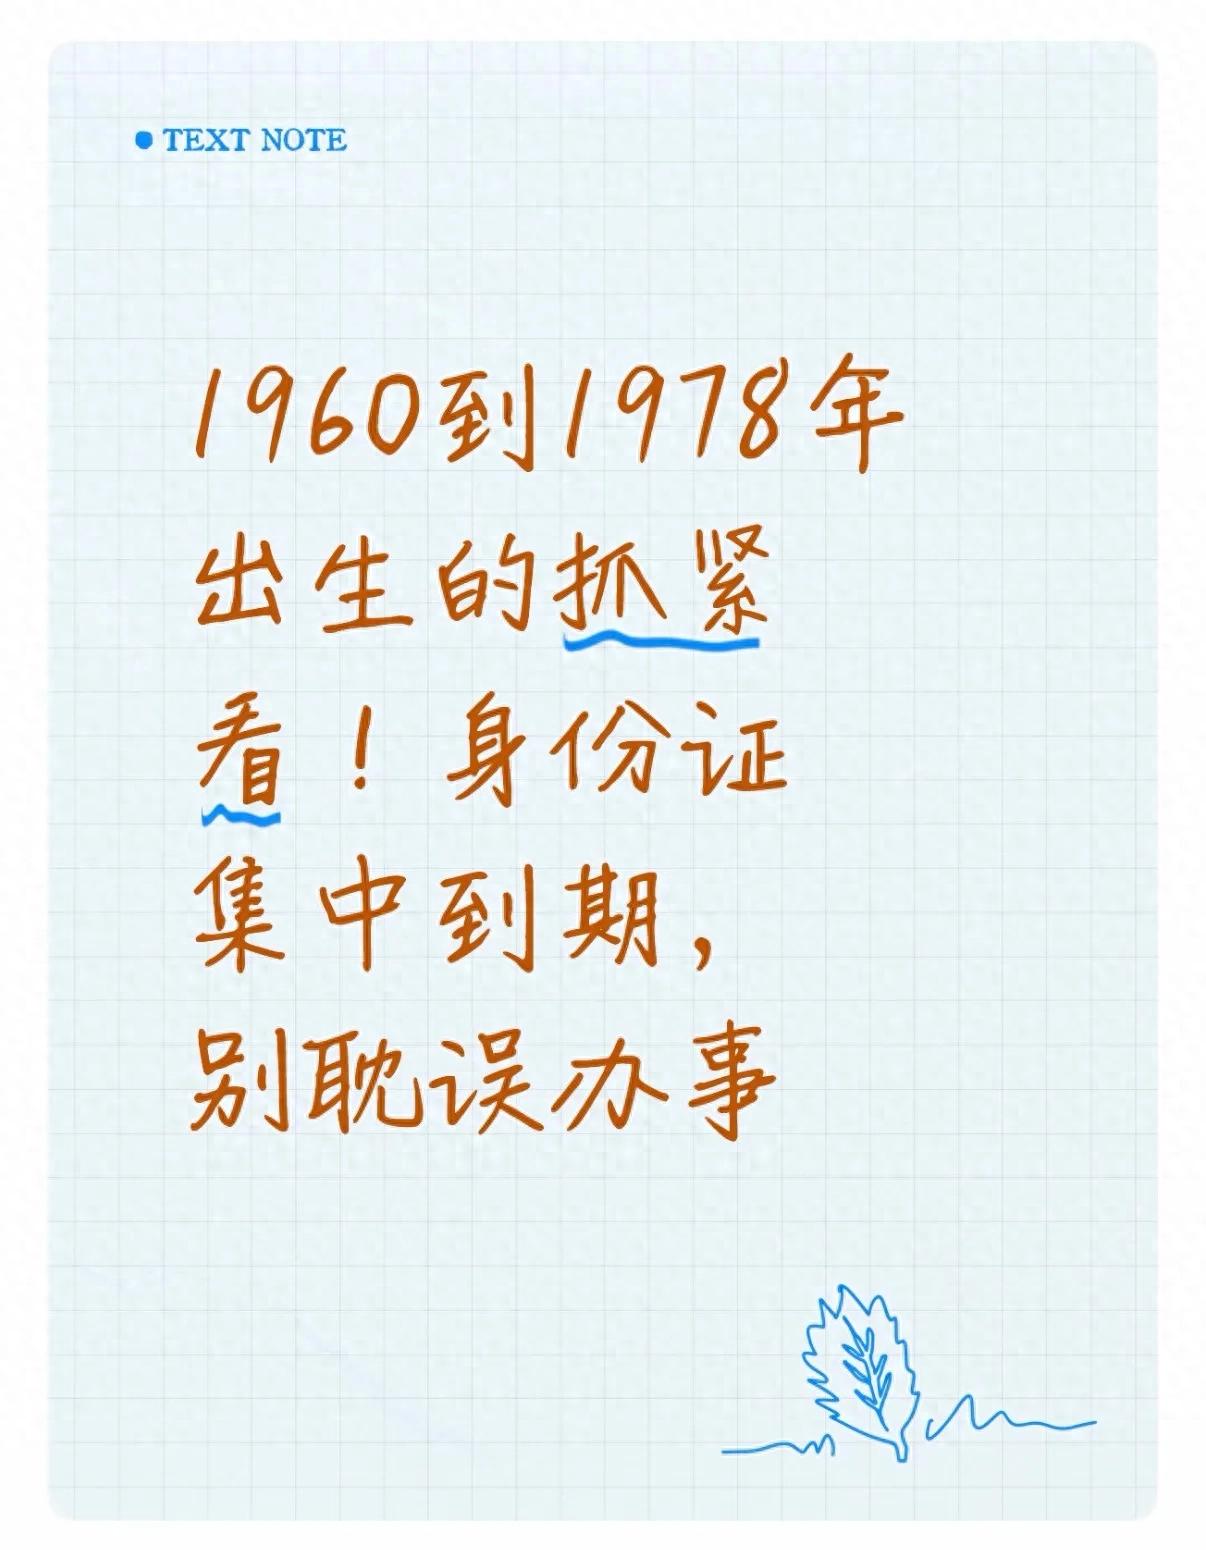 TEXT NOTE
1960到1978年
出生的抓紧
看！身份证
集中到期，
别耽误办事